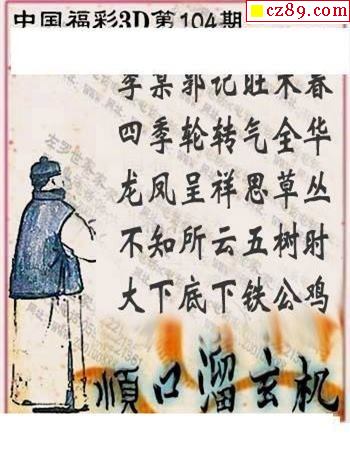 cz89.com
中国福彩3D第104期
李某郭记旺木春
四季轮转气全华
龙凤呈祥思草丛
不知所云五树时
大下底下铁公鸡
順口溜玄机